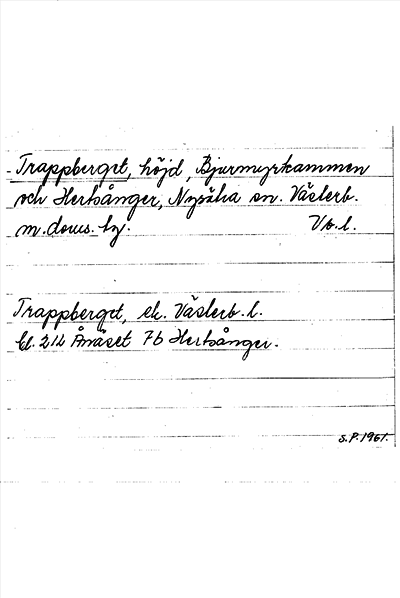 Trappberget, höjd, Bjurmyrkammen
och Hertsånger, Nysätra sn. Västerb.
m. doms. by. Vb. l.
Trappberget, ek. Västerb. l.
bl. 212 Ånäset 7b Hertsånger.
S.P. 1961.